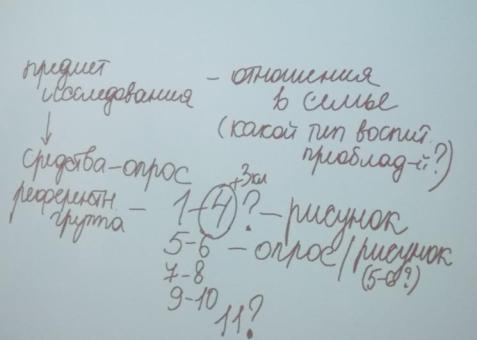 предмет исследования – отношения в семье
(какой тип воспит. преоблад-й?)
↓
средства – опрос
референтн. группа –
+3кл
1-4? – рисунок
5-6 – опрос/рисунок
(5-6?)
7-8
9-10
11?